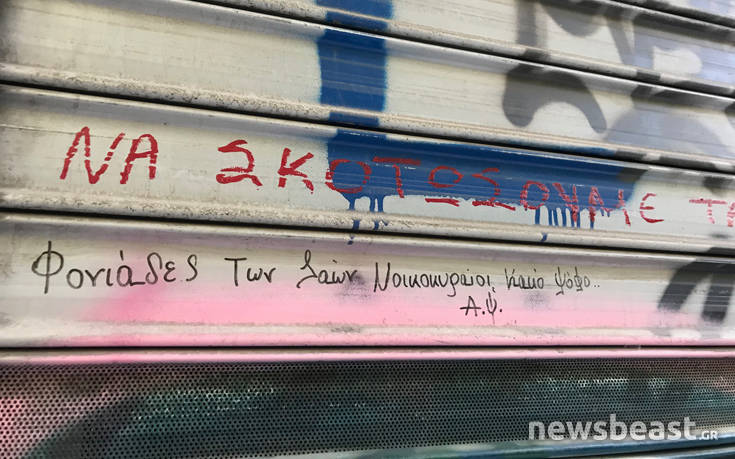 ΝΑ ΣΚΟΤΟΣΟΥΜΕ ΤΑ
Φονιάδες των Λαών Νοικοκυραίοι, κακό ψόφο..
Α.Ψ.
newsbeast.GR